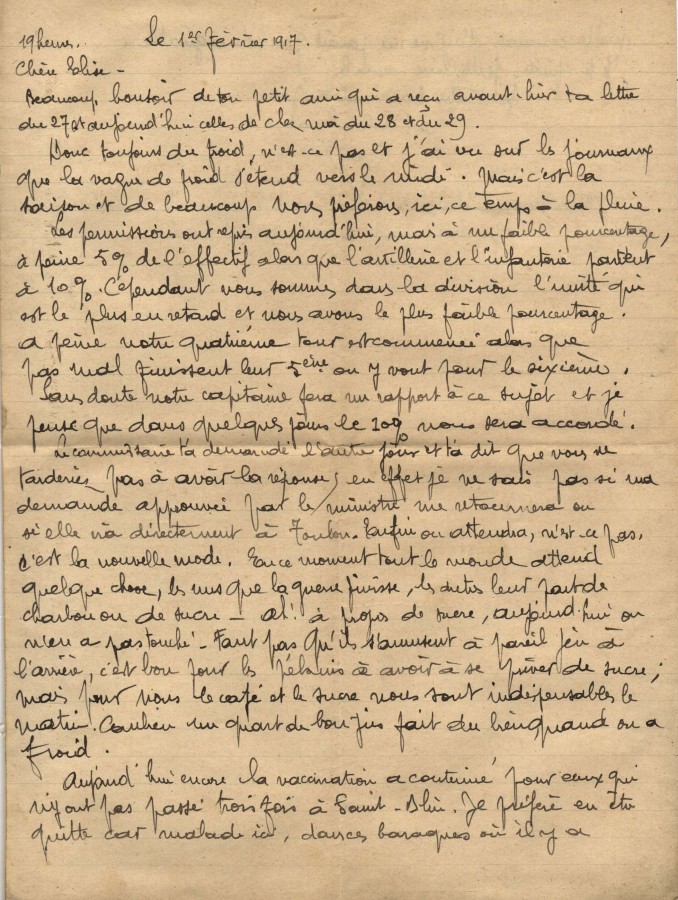 19 heures. Le 1er février 1917.
Chère Elise -
Beaucoup bonsoir de ton petit ami qui a reçu avant-hier ta lettre
du 27 et aujourd'hui celles de chez moi du 28 et du 29.
Donc toujours du froid, n'est-ce pas et j'ai vu sur les journaux
que la vague de froid s'étend vers le midi. Mais c'est la
saison et de beaucoup nous préférons, ici, ce temps à la pluie.
Les permissions ont repris aujourd'hui, mais à un faible pourcentage,
à peine 5% de l'effectif alors que l'artillerie et l'infanterie partent
à 10%. Cependant nous sommes dans la division l'unité qui
est le plus en retard et nous avons le plus faible pourcentage.
A peine notre quatrième tour est commencé alors que
pas mal finissent leur 5ème ou y vont pour le sixième.
Sans doute notre capitaine fera un rapport à ce sujet et je
pense que dans quelques jours le 10% nous sera accordé.
Le commissaire t'a demandé l'autre jour et t'a dit que vous ne
tarderiez pas à avoir la réponse, en effet je ne sais pas si ma
demande approuvée par le ministre me retournera ou
si elle ira directement à Toulon. Enfin on attendra, n'est-ce pas,
c'est la nouvelle mode. En ce moment tout le monde attend
quelque chose, les uns que la guerre finisse, les autres leur part de
charbon ou de sucre - ah! à propos de sucre, aujourd'hui on
n'en a pas touché - Faut pas qu'ils s'amusent à pareil jeu à
l'arrière, c'est bon pour les pékins à avoir à se priver de sucre;
mais pour nous le café et le sucre nous sont indispensables le
matin. Combien un quart de bon jus fait du bien quand on a
froid.
Aujourd'hui encore la vaccination a continué pour ceux qui
n'y ont pas passé trois fois à Saint-Blin. Je préfère en être
quitte car malade ici, dans ces baraques où il y a